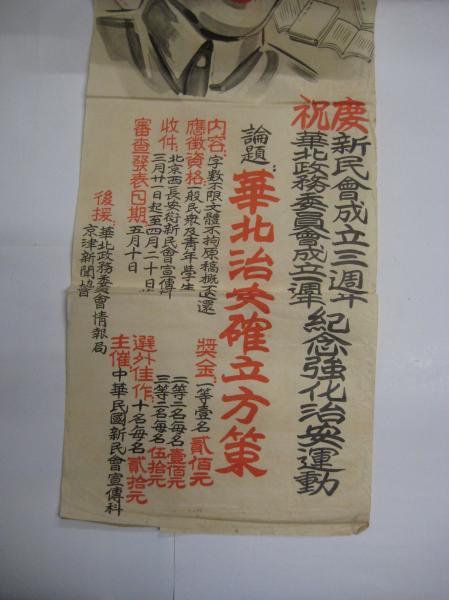 慶祝
新民會成立三週年
華北政務委員會成立週年
紀念強化治安運動
論題：華北治安確立方策
內容：字數不限文體不拘原稿概不退還
應徵資格：一般民眾及青年學生
收件：北京西長安街新民會宣傳科
三月廿一日起至四月二十日
審查發表日期：五月十日
後援：華北政務委員會情報局
京津新聞協
獎金：一等壹名貳佰元
二等二名每名壹佰元
三等三名每名伍拾元
選外佳作：十名每名貳拾元
主催：中華民國新民會宣傳科